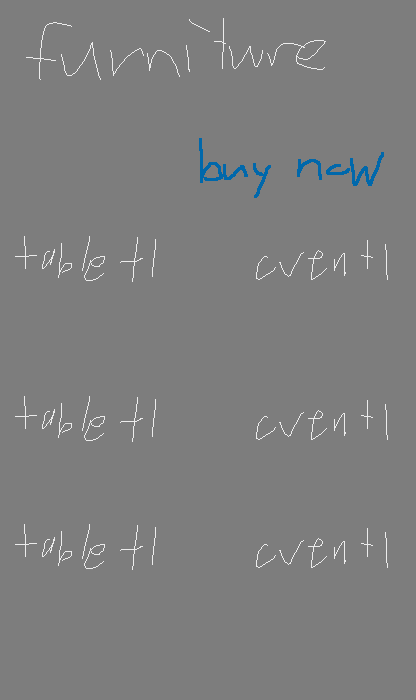 furniture
buy now
table t1 event1
table t1 event1
table t1 event1